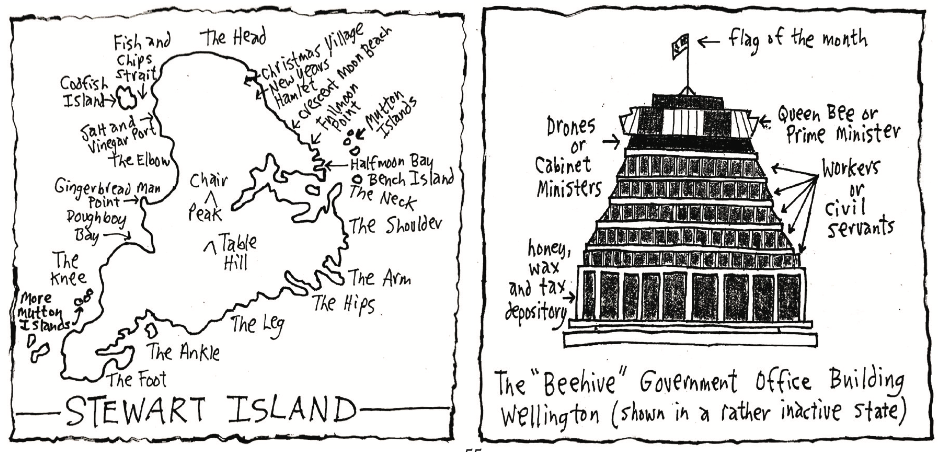 The Head
Fish and
Chips
Strait
Codfish
Island
Salt and
Vinegar Port
The Elbow
Gingerbread Man
Point
Doughboy
Bay
The
Knee
More
Mutton
Islands
Christmas Village
New Years
Hamlet
Crescent Moon Beach
Fullmoon
Point
Mutton
Islands
Halfmoon Bay
Bench Island
The Neck
The Shoulder
Chair
Peak
Table
Hill
The Arm
The Hips
The Leg
The Ankle
The Foot
STEWART ISLAND
flag of the month
Queen Bee or
Prime Minister
Drones
or
Cabinet
Ministers
Workers
or
civil
servants
honey,
wax
and tax
depository
The "Beehive" Government Office Building
Wellington (shown in a rather inactive state)